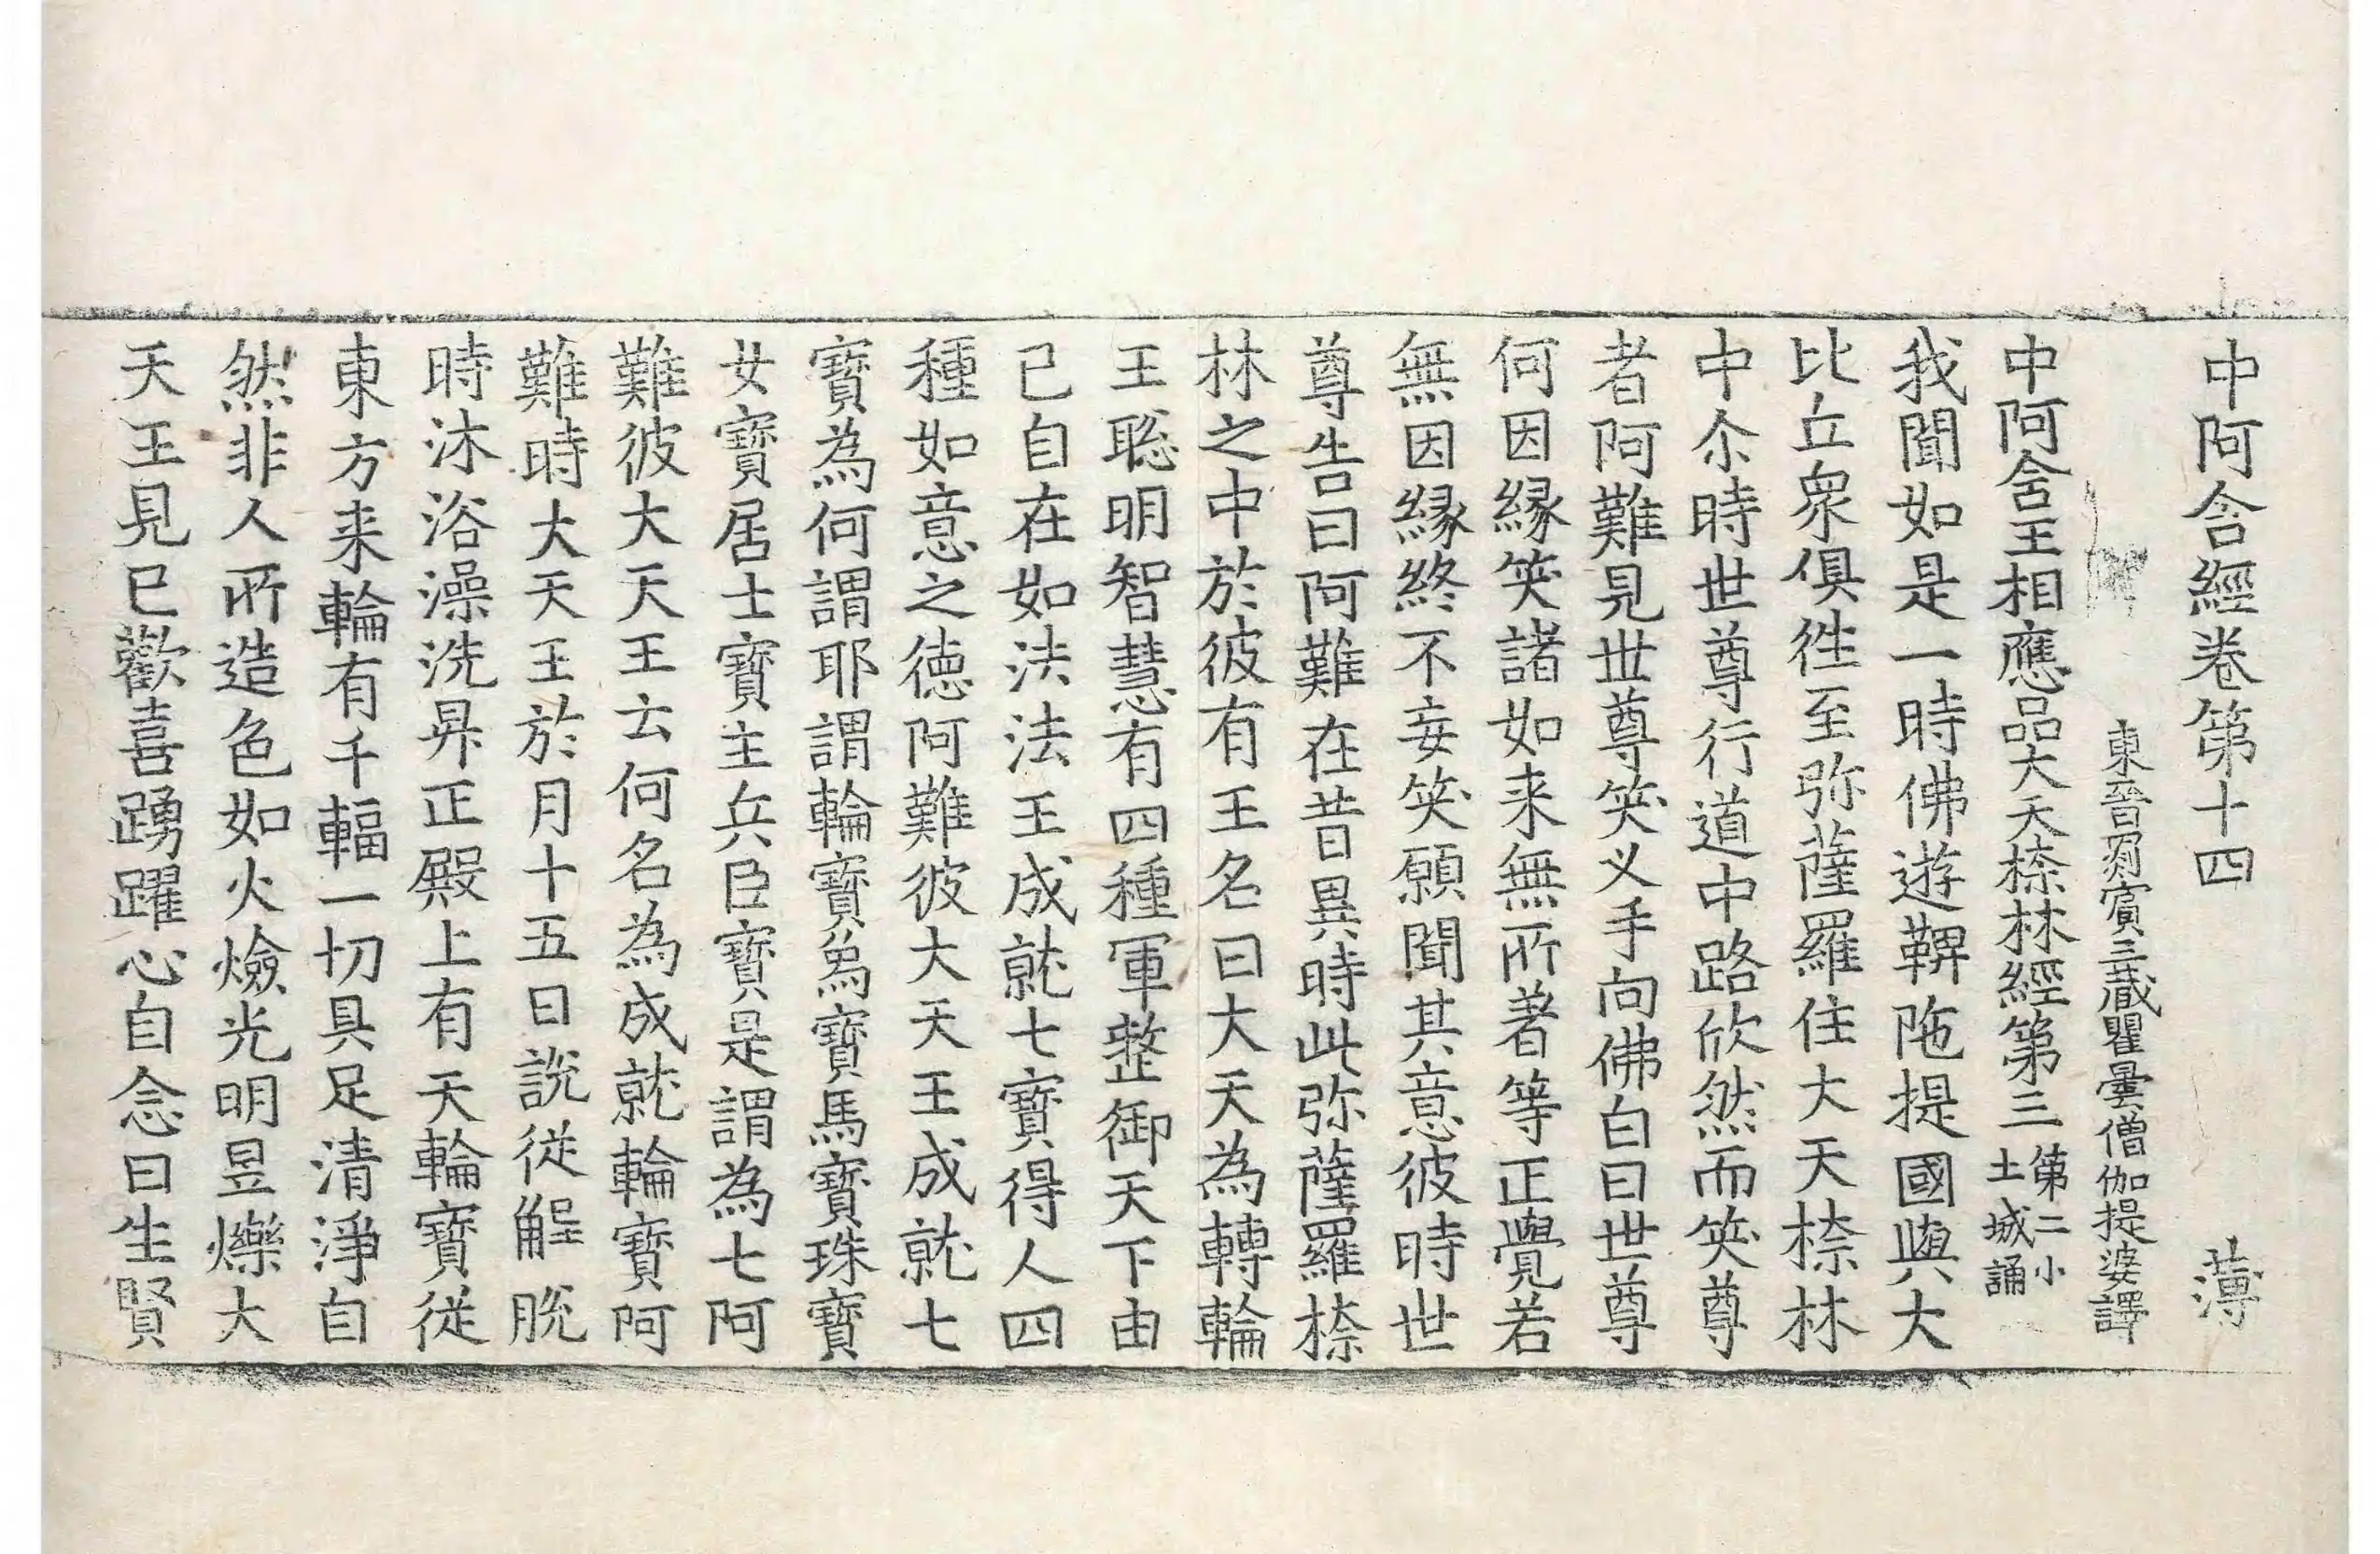 中阿含經卷第十四 薄
東晉罽賓三藏瞿曇僧伽提婆譯
中阿含王相應品大天㮈林經第三 第二小土城誦
我聞如是一時佛遊鞞陁提國與大
比丘衆俱徃至弥薩羅住大天㮈林
中尒時世尊行道中路欣然而笑尊
者阿難見世尊笑叉手向佛白曰世尊
何因縁笑諸如来無所著等正覺若
無因縁終不妄笑願聞其意彼時世
尊告曰阿難在昔異時此弥薩羅㮈
林之中於彼有王名曰大天為轉輪
王聡明智慧有四種軍整御天下由
已自在如法法王成就七寶得人四
種如意之徳阿難彼大天王成就七
寶為何謂耶謂輪寶象寶馬寶珠寶
女寶居士寶主兵臣寶是謂為七阿
難彼大天王云何名為成就輪寶阿
難時大天王於月十五日說従解脫
時沐浴澡洗昇正殿上有天輪寶従
東方来輪有千輻一切具足清淨自
然非人所造色如火爓光明昱爍大
天王見已歡喜踴躍心自念曰生賢